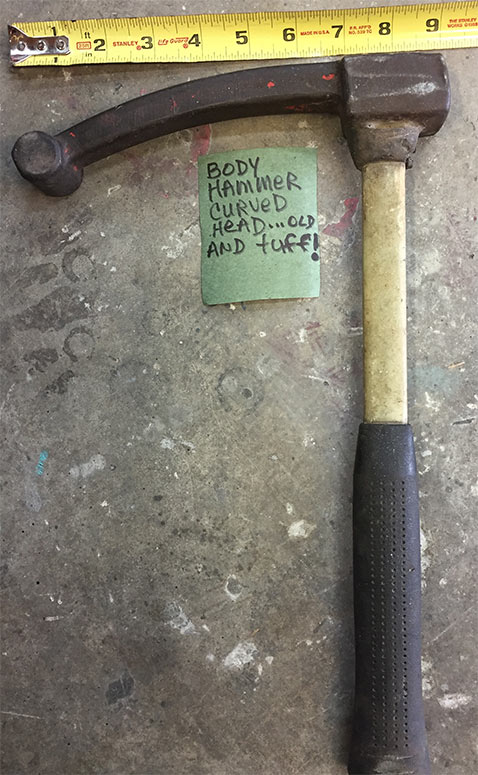 1 ft 2 STANLEY 3 Life Guard 4 5 6 MADE IN U.S.A. 7 8 9 THE STANLEY
BODY
HAMMER
CURVED
HEAD...OLD
AND tuff!